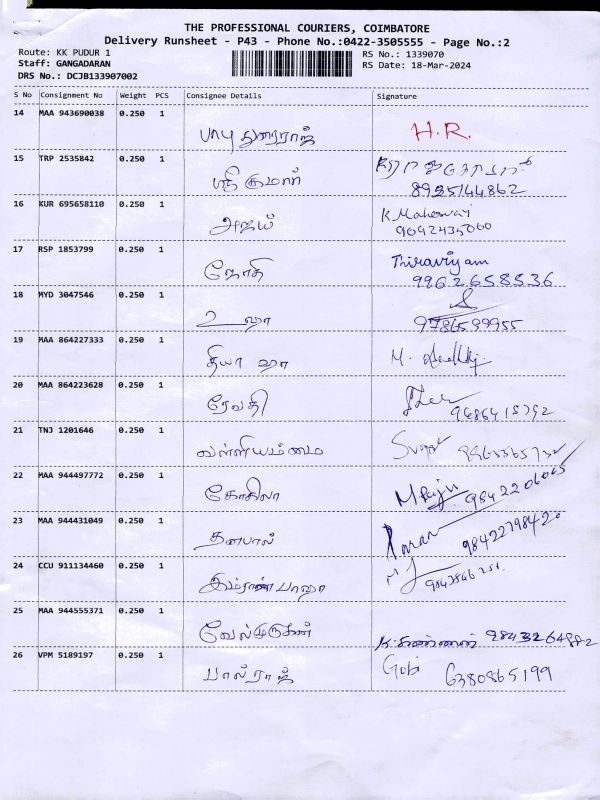 THE PROFESSIONAL COURIERS, COIMBATORE
Delivery Runsheet - P43 - Phone No.:0422-3505555 - Page No.:2
Route: KK PUDUR 1
RS No.: 1339070
Staff: GANGADARAN
RS Date: 18-Mar-2024
DRS No.: DCJB133907002
S No Consignment No Weight PCS Consignee Details Signature
14 MAA 943690038 0.250 1
பாபு துரைராஜ் H.R.
15 TRP 2535842 0.250 1
ஸ்ரீ குமார்
8925144862
16 KUR 695658110 0.250 1
அஜய் K Maheswari
9092435060
17 RSP 1853799 0.250 1
ஜோதி Thiraviyam
9962658536
18 MYD 3047546 0.250 1
உஷா
9786599955
19 MAA 864227333 0.250 1
தியா ஷா
20 MAA 864223628 0.250 1
ரேவதி 9486415792
21 TNJ 1201646 0.250 1
வள்ளியம்மை
22 MAA 944497772 0.250 1
கோகிலா M Raju 9842206065
23 MAA 944431049 0.250 1
தனபால் 9842279842
24 CCU 911134460 0.250 1
இம்ரான் பாஷா
25 MAA 944555371 0.250 1
வேல்முருகன் K. கண்ணன் 9843264882
26 VPM 5189197 0.250 1
பால்ராஜ் Gobi 6380865199